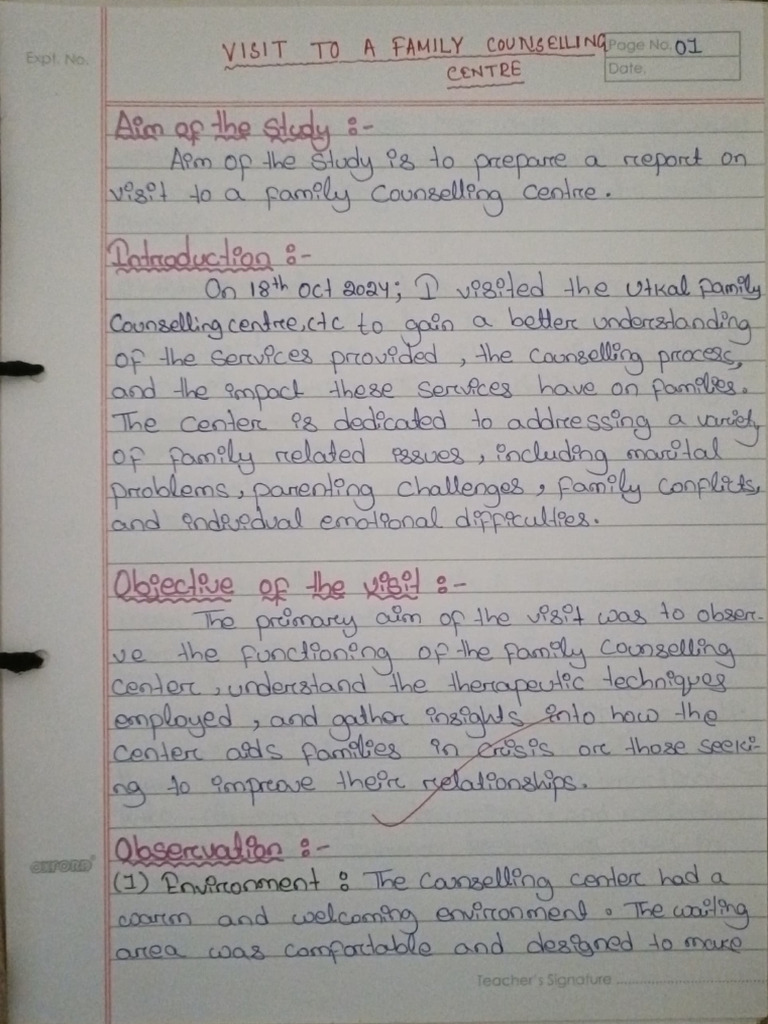 Expt. No.
VISIT TO A FAMILY COUNSELLING
CENTRE
Page No. 01
Date.
Aim of the study :-
Aim of the study is to prepare a report on
visit to a family counselling centre.
Introduction :-
On 18th Oct 2024; I visited the Utkal family
counselling centre, ctc to gain a better understanding
of the services provided, the counselling process,
and the impact these services have on families.
The center is dedicated to addressing a variety
of family related issues, including marital
problems, parenting challenges, family conflicts,
and individual emotional difficulties.
Objective of the visit :-
The primary aim of the visit was to obser-
ve the functioning of the family counselling
center, understand the therapeutic techniques
employed, and gather insights into how the
center aids families in crisis or those seeki-
ng to improve their relationships.
Observation :-
oxford
(1) Environment : The counselling center had a
warm and welcoming environment. The waiting
area was comfortable and designed to make
Teacher's Signature